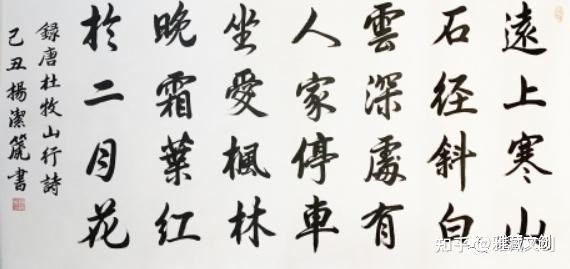 遠上寒山
石径斜白
雲深處有
人家停車
坐愛楓林
晚霜葉紅
於二月花
録唐杜牧山行詩
己丑楊潔篪書
知乎 @雅藏文创